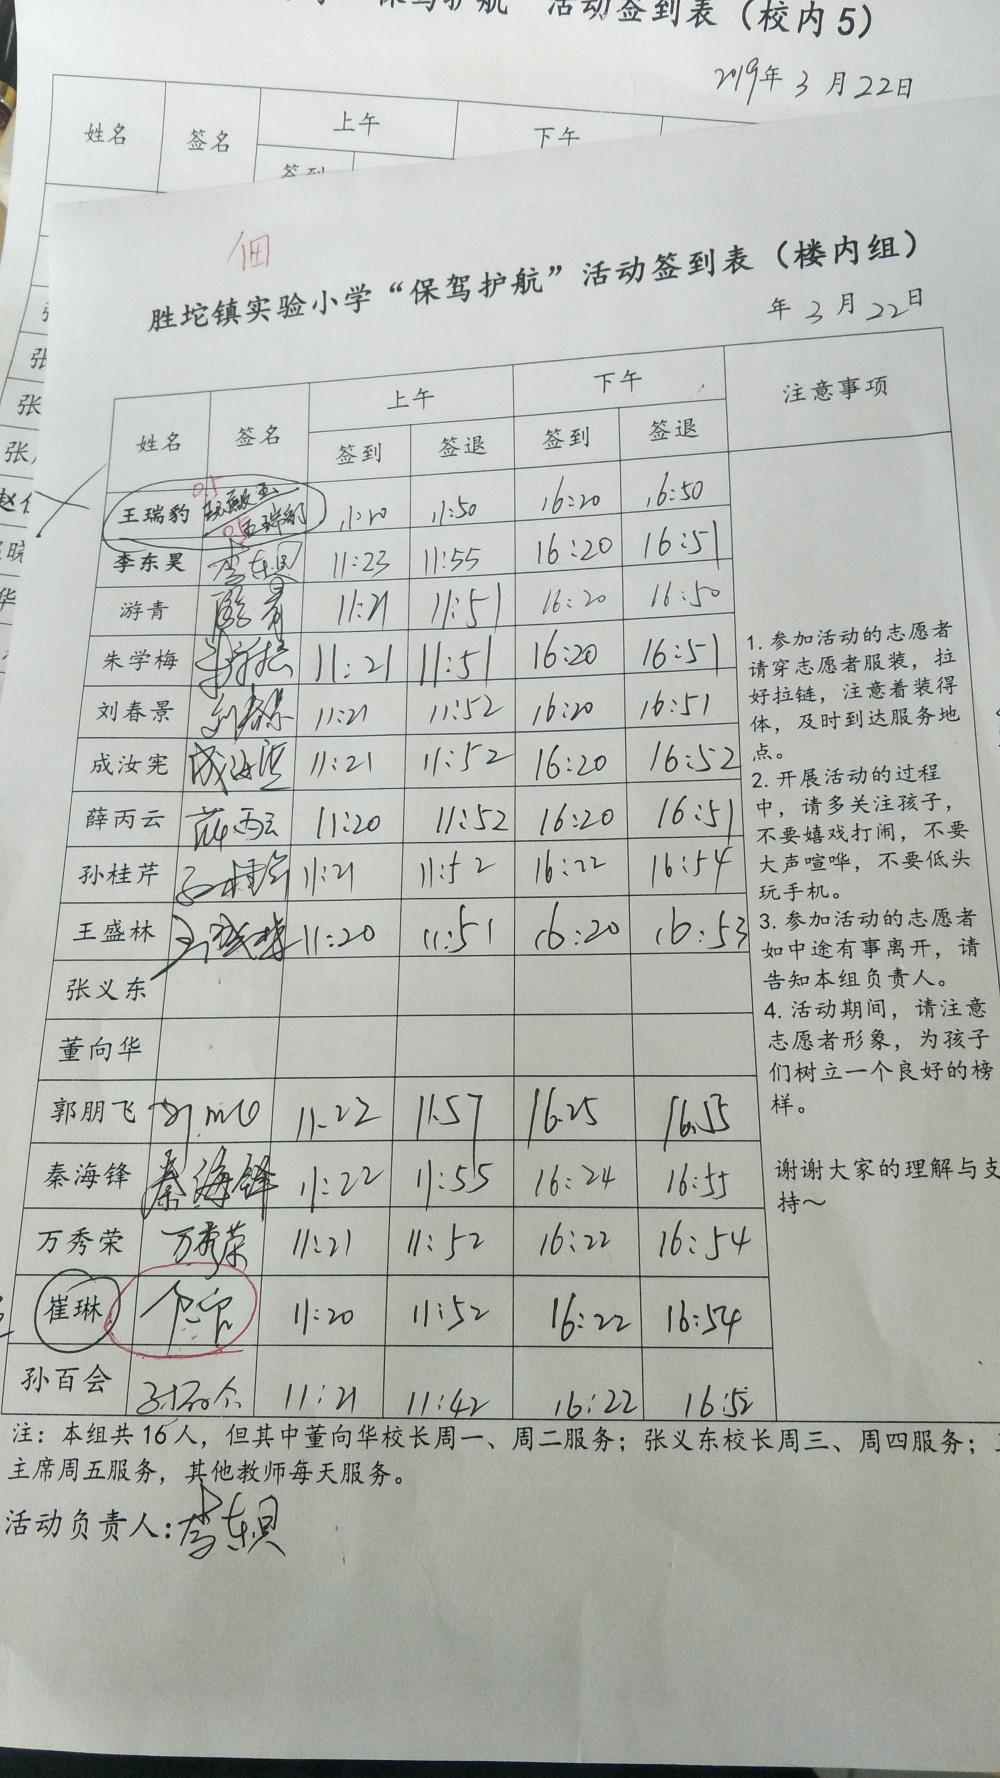 “保驾护航”活动签到表（校内5）
2019年 3 月 22日
姓名 签名 上午 下午
签到
张
张
张
赵
华
佃
胜坨镇实验小学“保驾护航”活动签到表（楼内组）
年 3 月 22日
姓名 签名 上午 下午 注意事项
签到 签退 签到 签退
王瑞豹 0.5 0.5 11:20 11:50 16:20 16:50
李东昊 李东昊 11:23 11:55 16:20 16:51
游青 游青 11:21 11:51 16:20 16:50
朱学梅 11:21 11:51 16:20 16:51
刘春景 刘春景 11:21 11:52 16:20 16:51
成汝宪 成汝宪 11:21 11:52 16:20 16:52
薛丙云 薛丙云 11:20 11:52 16:20 16:51
孙桂芹 孙桂芹 11:21 11:52 16:22 16:54
王盛林 王盛林 11:20 11:51 16:20 16:53
张义东
董向华
郭朋飞 11:22 11:57 16:25 16:55
秦海锋 秦海锋 11:22 11:55 16:24 16:55
万秀荣 万秀荣 11:21 11:52 16:22 16:54
崔琳 11:20 11:52 16:22 16:54
孙百会 11:21 11:42 16:22 16:52
1. 参加活动的志愿者
请穿志愿者服装，拉
好拉链，注意着装得
体，及时到达服务地
点。
2. 开展活动的过程
中，请多关注孩子，
不要嬉戏打闹，不要
大声喧哗，不要低头
玩手机。
3. 参加活动的志愿者
如中途有事离开，请
告知本组负责人。
4. 活动期间，请注意
志愿者形象，为孩子
们树立一个良好的榜
样。
谢谢大家的理解与支
持～
注：本组共16人，但其中董向华校长周一、周二服务；张义东校长周三、周四服务；
主席周五服务，其他教师每天服务。
活动负责人：李东昊